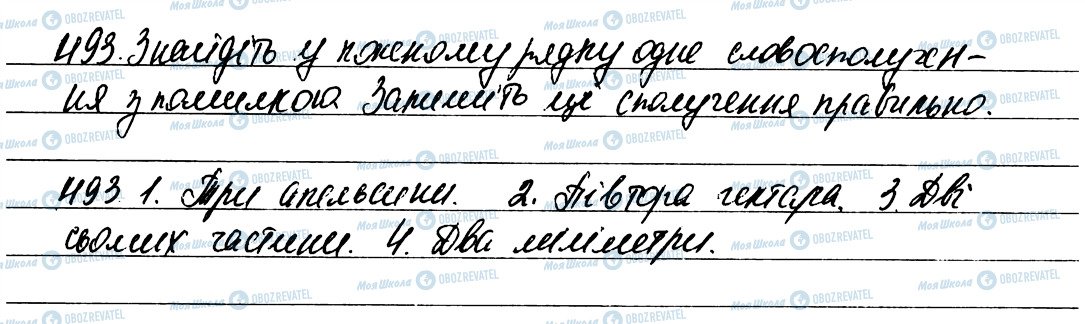 493. Знайдіть у кожному рядку одне словосполучен-
ня з помилкою Запишіть ці сполучення правильно.
493 1. Три апельсини. 2. Півтора гектара. 3. Дві
сьомих частини. 4. Два міліметри.